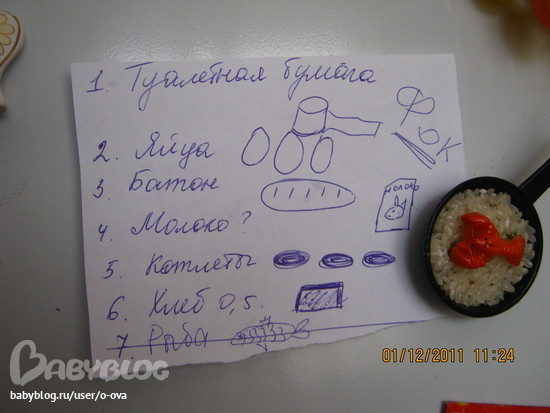 1. Туалетная бумага
2. Яйца
3. Батон
4. Молоко?
МОЛОКО
5. Котлеты
6. Хлеб 0,5.
7. Рыба
BABYBLOG
babyblog.ru/user/o-ova
01/12/2011 11:24